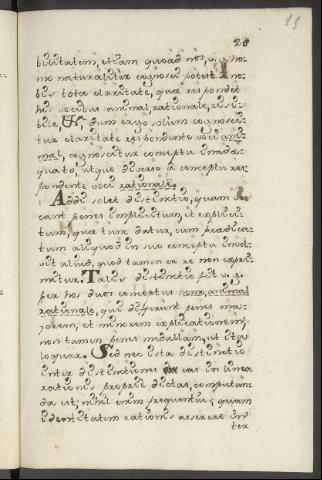 20
15
bilitatem, etiam quoad nos, v. g. ho-
mo naturaliter cognosci potest a no-
bis tota claritate, quæ respondet
his vocibus animal, rationale, risi-
bile, &c., dum ergo solum cognosci-
tur claritate respondente voci ani-
mal, cognoscitur conceptu inadæ-
quato, atque diverso a conceptu res-
pondente voci rationale.
Addi solet distinctio, quam vo-
cant penes implicitum, et explici-
tum, quæ tunc datur, cum prædica-
tum aliquod in suo conceptu invol-
vit aliud, quod tamen ea re non expri-
mitur. Talis distinctio fit v. g.
per hos duos conceptus homo, animal
rationale, qui differunt penes ma-
jorem, et minorem explicationem,
non tamen penes medullam, ut ita
loquar. Sed nec ista distinctio
inter distinctiones eas in linea
rationis proprie dictas, computan-
da est; nihil enim frequentius, quam
identitatem rationis asserere in-
ter